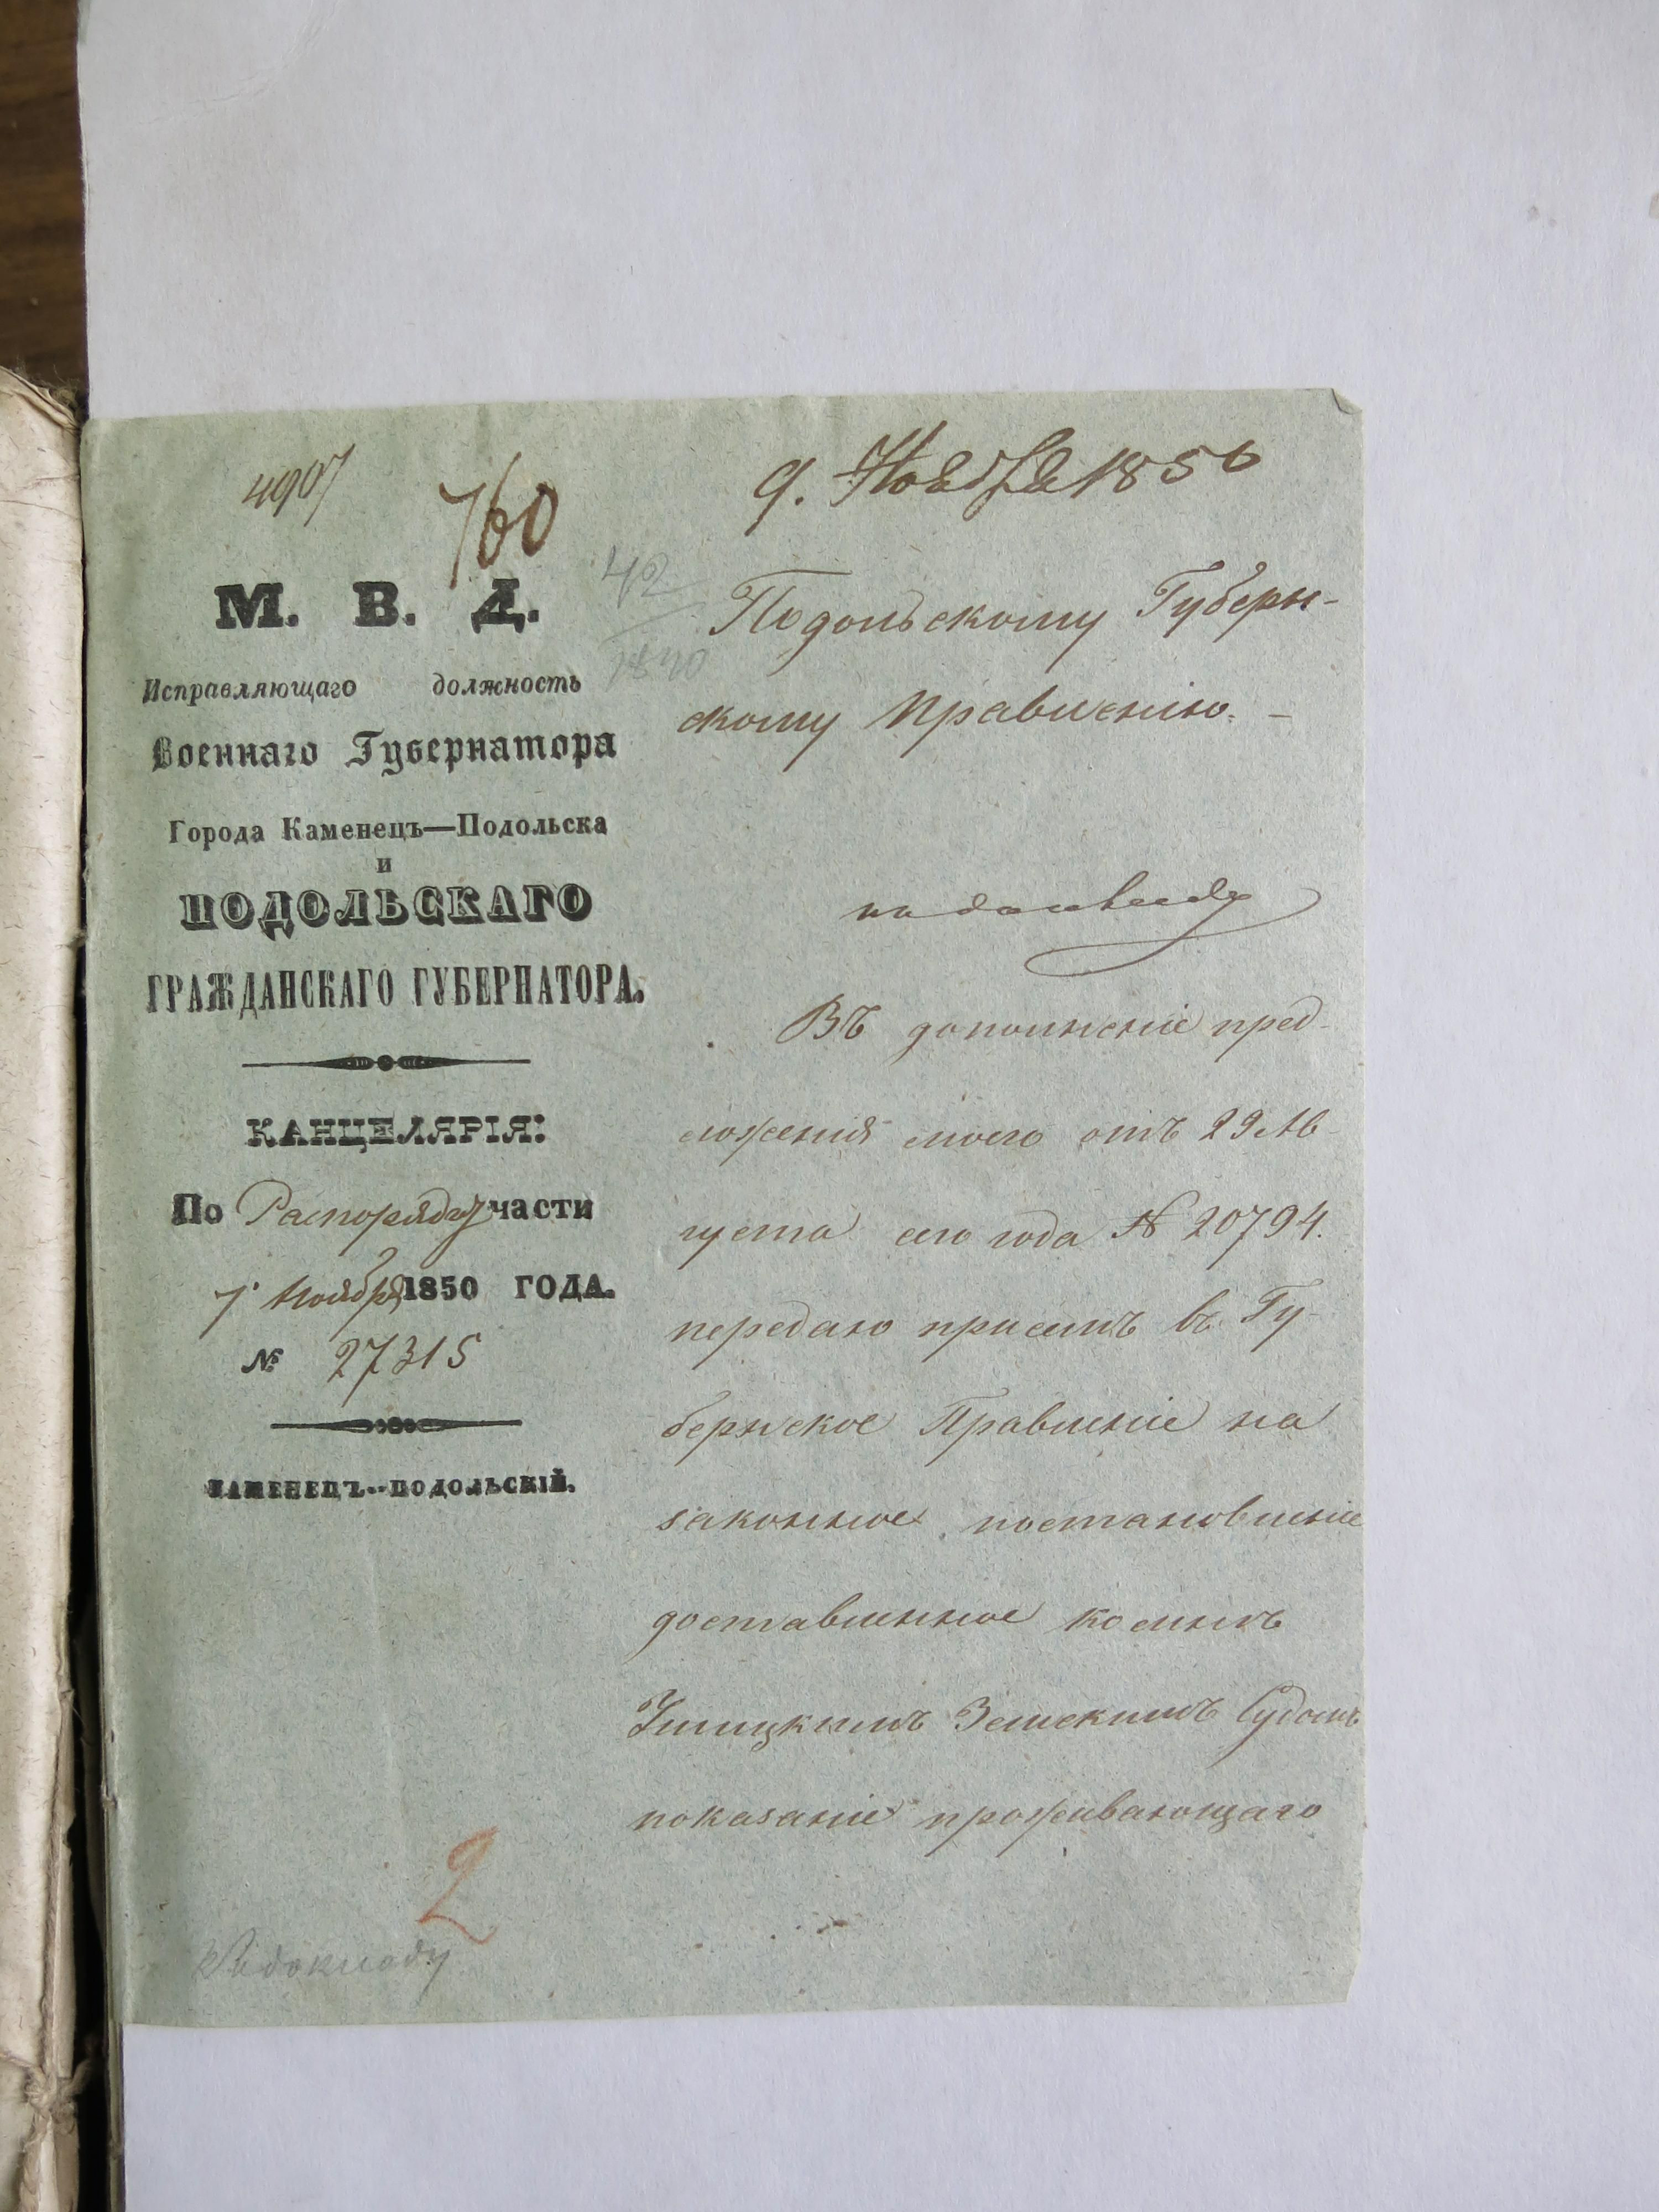 4907
760
9. Ноября 1850
42
М. В. Д.
Исправляющаго должность
Военнаго Губернатора
Города Каменецъ—Подольска
и
ПОДОЛЬСКАГО
ГРАЖДАНСКАГО ГУБЕРНАТОРА.
КАНЦЕЛЯРІЯ:
По Распоряд. части
7 Ноября 1850 ГОДА.
№ 27315
КАМЕНЕЦЪ--ПОДОЛЬСКІЙ.
2
Къ докладу
Подольскому Губерн-
скому Правленію. –
Въ дополненіе пред-
ложенія моего отъ 29 Ав-
густа сего года № 20794.
передаю присемъ въ Гу-
бернское Правленіе на
законное постановленіе
доставленное ко мнѣ
Ушицкимъ Земскимъ Судомъ
показаніе проживающаго